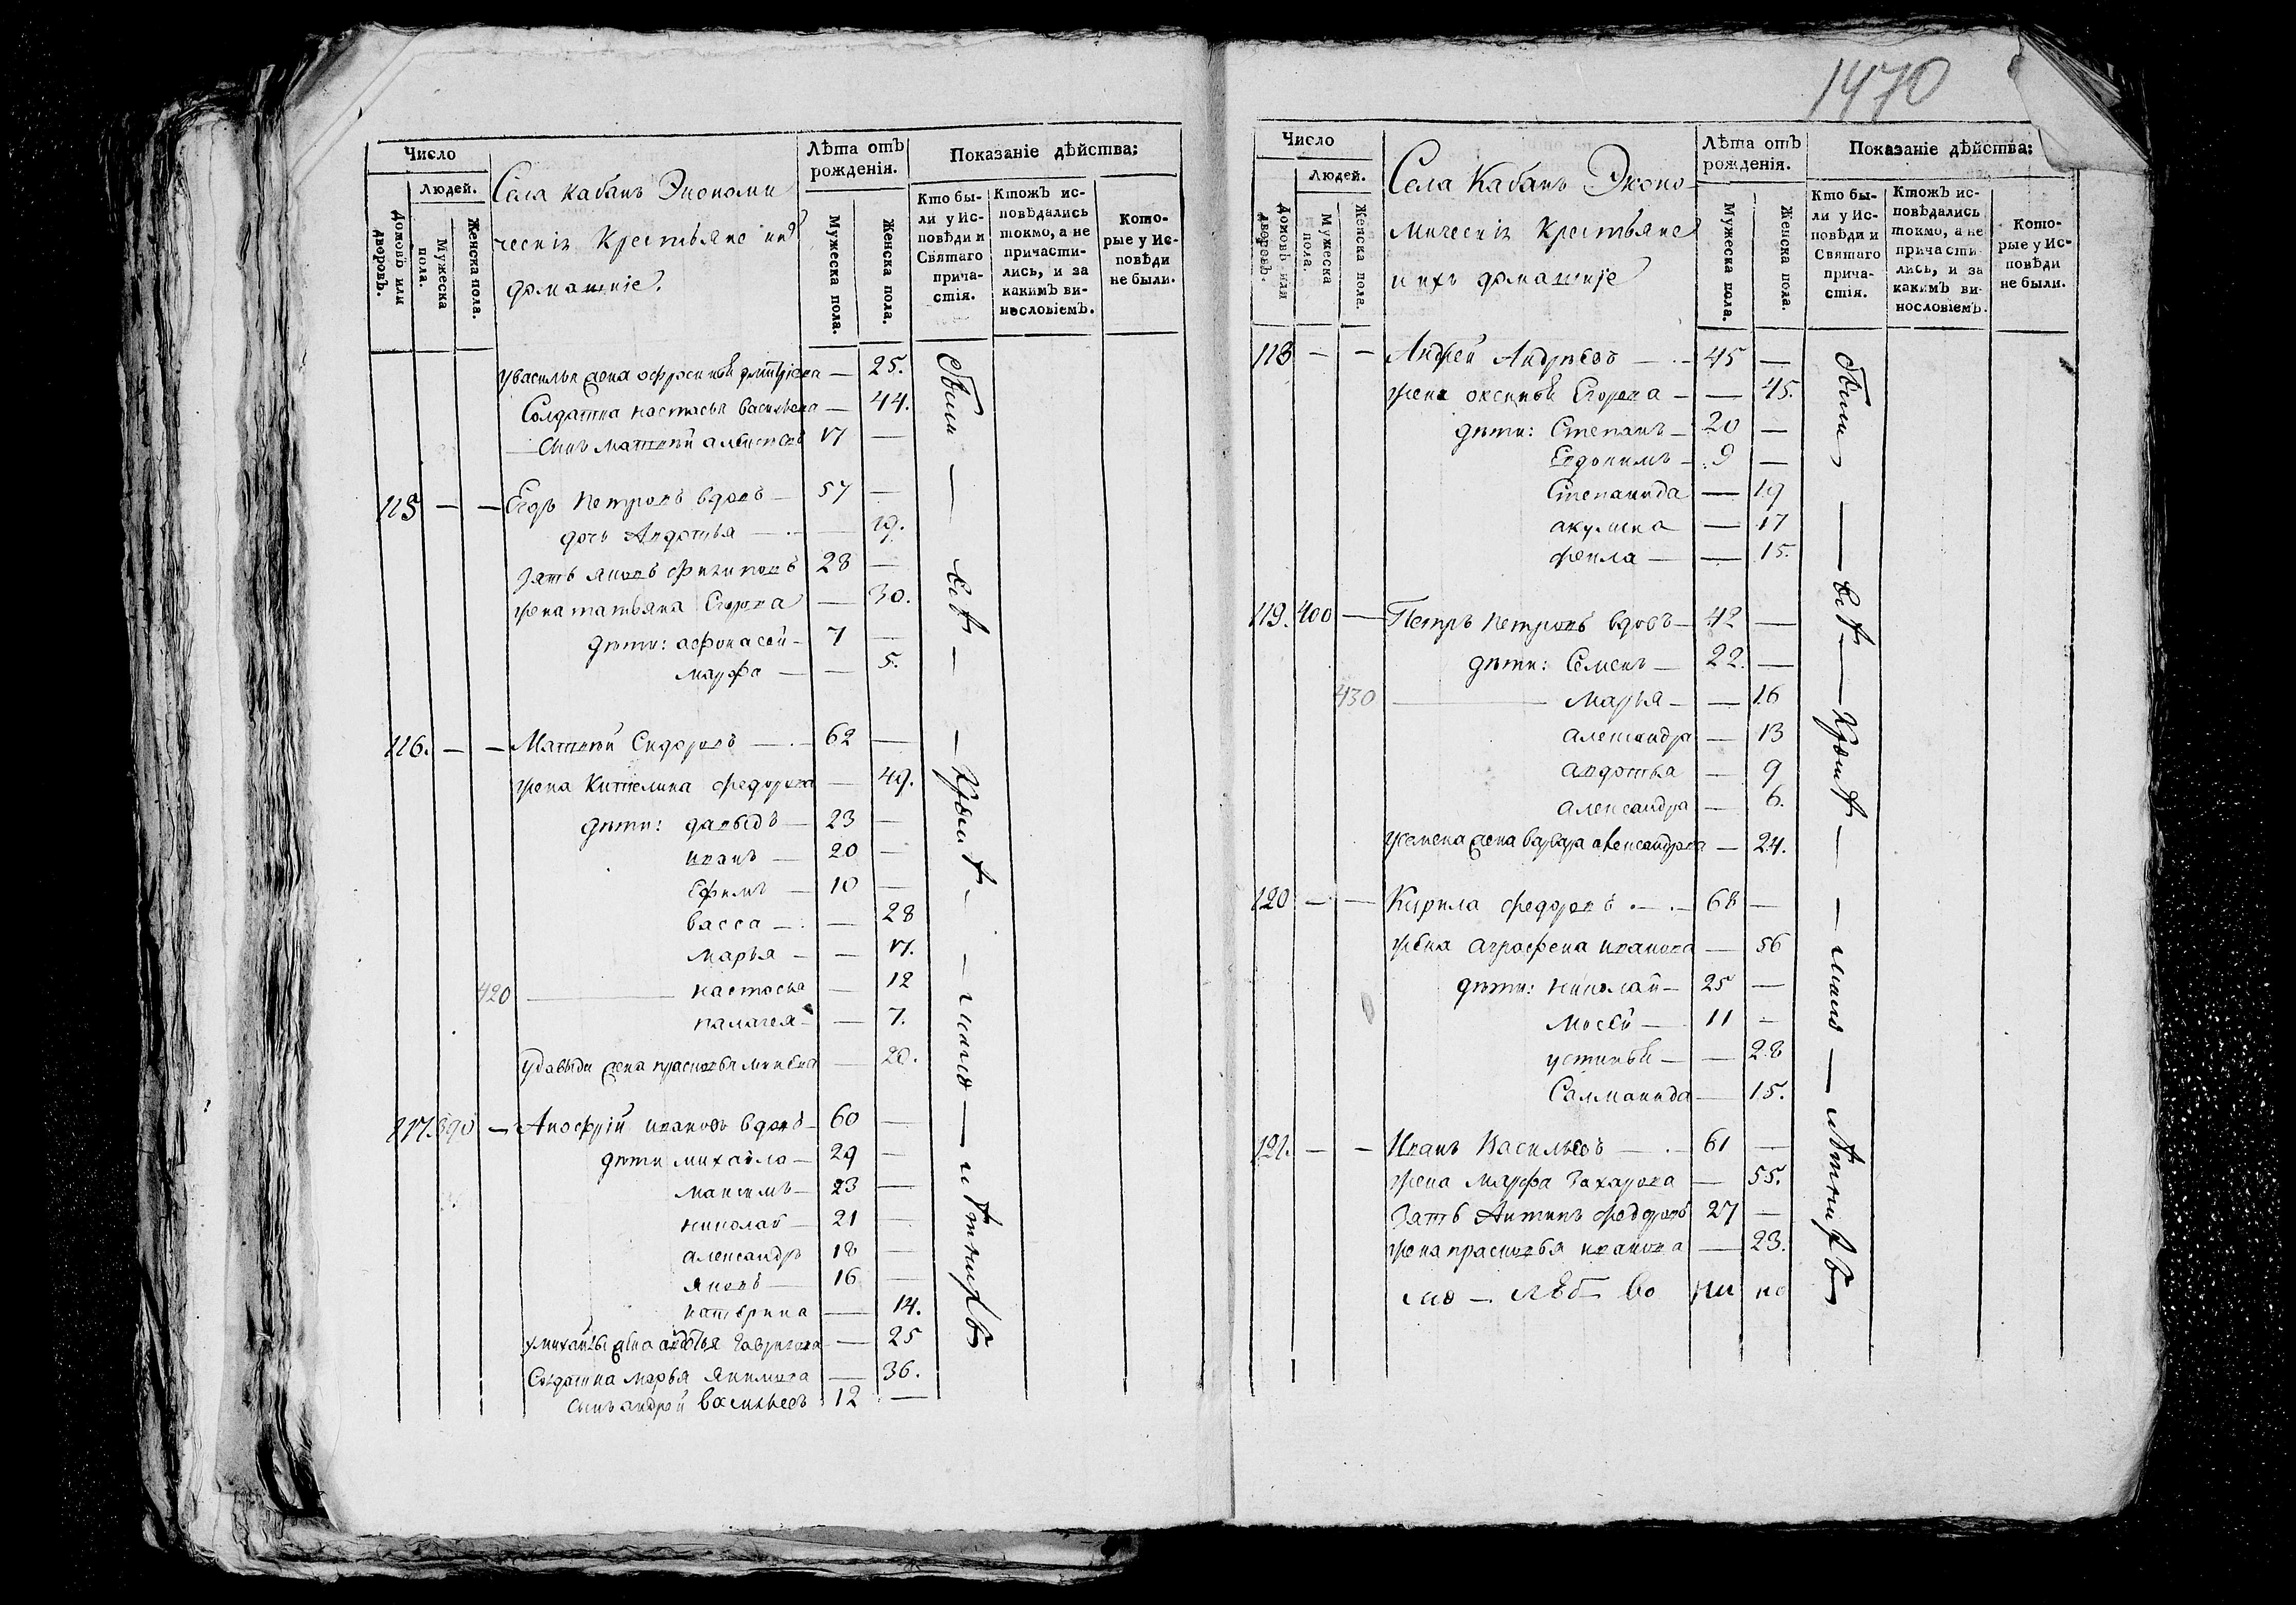 1470
Число
Людей.
Домовъ или дворовъ.
Мужеска пола.
Женска пола.
Села Кабанъ Экономи
ческія Крестьяне ихъ
домашніе.
Лѣта отъ рожденія.
Мужеска пола.
Женска пола.
Показаніе дѣйства:
Кто бы-
ли у Ис-
повѣди и
Святаго
прича-
стія.
Ктожъ ис-
повѣдались
токмо, а не
причасти-
лись, и за
какимъ ви-
нословіемъ.
Кото-
рые у Ис-
повѣди
не были.
у василья жена офросинья дмитріева — 25.
Солдатка настасья васильева — 44.
сынъ матвей алексеевъ 17 —
115 — — Егоръ Петровъ вдовъ — 57 —
дочь Авдотья — 19.
зять яковъ филиповъ 28 —
жена татьяна Егорова — 30.
дѣти: афонасей — 7 —
марфа — — 5.
116. — — Матвей Сидоровъ — 62 —
жена Кителина федорова — 49.
дѣти: давыдъ — 23 —
иванъ — 20 —
Ефимъ — 10 —
васса — — 28
марья — — 17.
420 — настасья — 12
палагея — — 7.
у давыда жена прасковья минеева — 20.
117. 390 — Аносфрій ивановъ вдовъ — 60 —
дѣти михайло — 29 —
максимъ — 23 —
николай — 21 —
александръ 18 —
яковъ — 16 —
катерина — 14.
у михайлы жена авдотья гаврилова — 25
Солдатка марья якимова — 36.
сынъ андрей васильевъ 12 —
были — всѣ — — кромѣ — — мало — лѣтнихъ
Число
Людей.
Домовъ или дворовъ.
Мужеска пола.
Женска пола.
Села Кабанъ Эконо-
мическія Крестьяне
и ихъ домашніе
Лѣта отъ рожденія.
Мужеска пола.
Женска пола.
Показаніе дѣйства:
Кто бы-
ли у Ис-
повѣди и
Святаго
прича-
стія.
Ктожъ ис-
повѣдались
токмо, а не
причасти
лись, и за
какимъ ви-
нословіемъ.
Кото-
рые у Ис-
повѣди
не были.
118 — — Андрей Андреевъ — 45 —
жена оксинья Егорова — — 45.
дѣти: Степанъ — 20 —
Евдокимъ — 9 —
Степанида — 19
акулина — 17
фекла — — 15.
119. 400 — Петръ Петровъ вдовъ — 42 —
дѣти: Семенъ — 22. —
430 — Марья — — 16
александра — 13
авдотья — 9
александра — 6.
у семена жена варвара александрова — 24.
120 — — Кирила федоровъ — 68 —
жена аграфена иванова — 56
дѣти: николай — 25 —
Мосей — 11 —
устинья — — 28
Саломанида — 15.
121. — — Иванъ Васильевъ — 61 —
жена Марфа Захарова — 55.
Зять Антипъ федоровъ 27 —
жена прасковья иванова — 23.
были — всѣ — кромѣ — — мало — лѣтнихъ